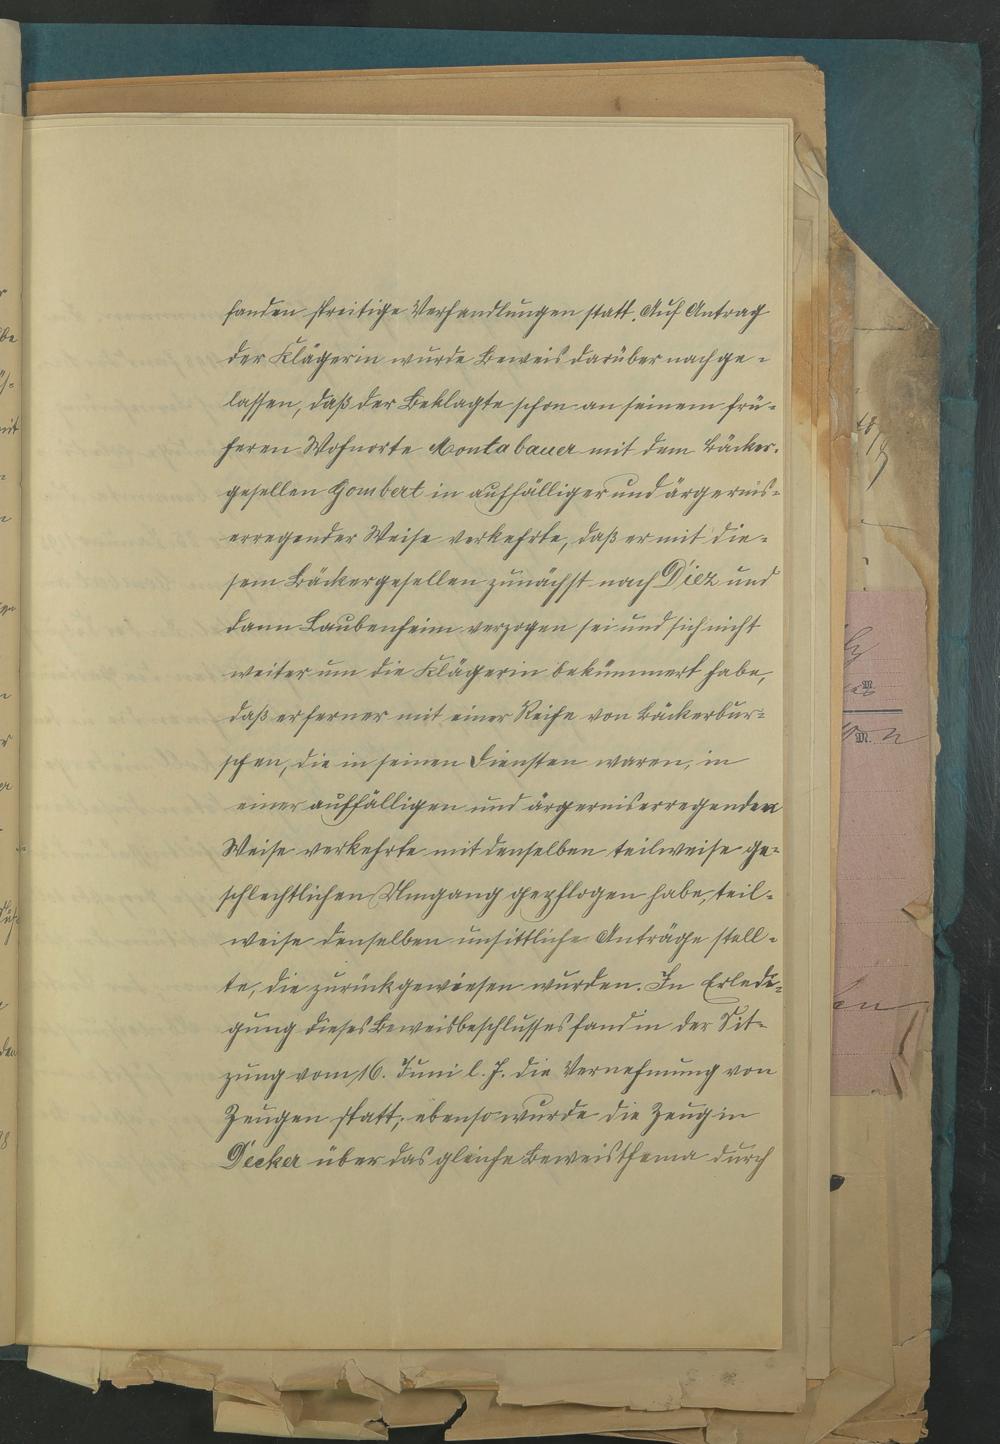 fanden streitige Verhandlungen statt. Auf Antrag
der Klägerin wurde Beweis darüber nachge-
lassen, daß der Beklagte schon an seinem frü-
heren Wohnorte Montabauer mit dem Bäcker-
gesellen Gombert in auffälliger und ärgernis-
erregender Weise verkehrte, daß er mit die-
sem Bäckergesellen zunächst nach Diez und
dann Laubenheim verzogen sei und sich nicht
weiter um die Klägerin bekümmert habe,
daß er ferner mit einer Reihe von Bäckerbur-
schen, die in seinen Diensten waren, in
einer auffälligen und ärgerniserregenden
Weise verkehrte mit denselben teilweise ge-
schlechtlichen Umgang gepflogen habe, teil-
weise denselben unsittliche Anträge stell-
te, die zurückgewiesen wurden. In Erledi-
gung dieses Beweisbeschlusses fand in der Sit-
zung vom 16. Juni l. J. die Vernehmung von
Zeugen statt; ebenso wurde die Zeugin
Decker über das gleiche Beweisthema durch